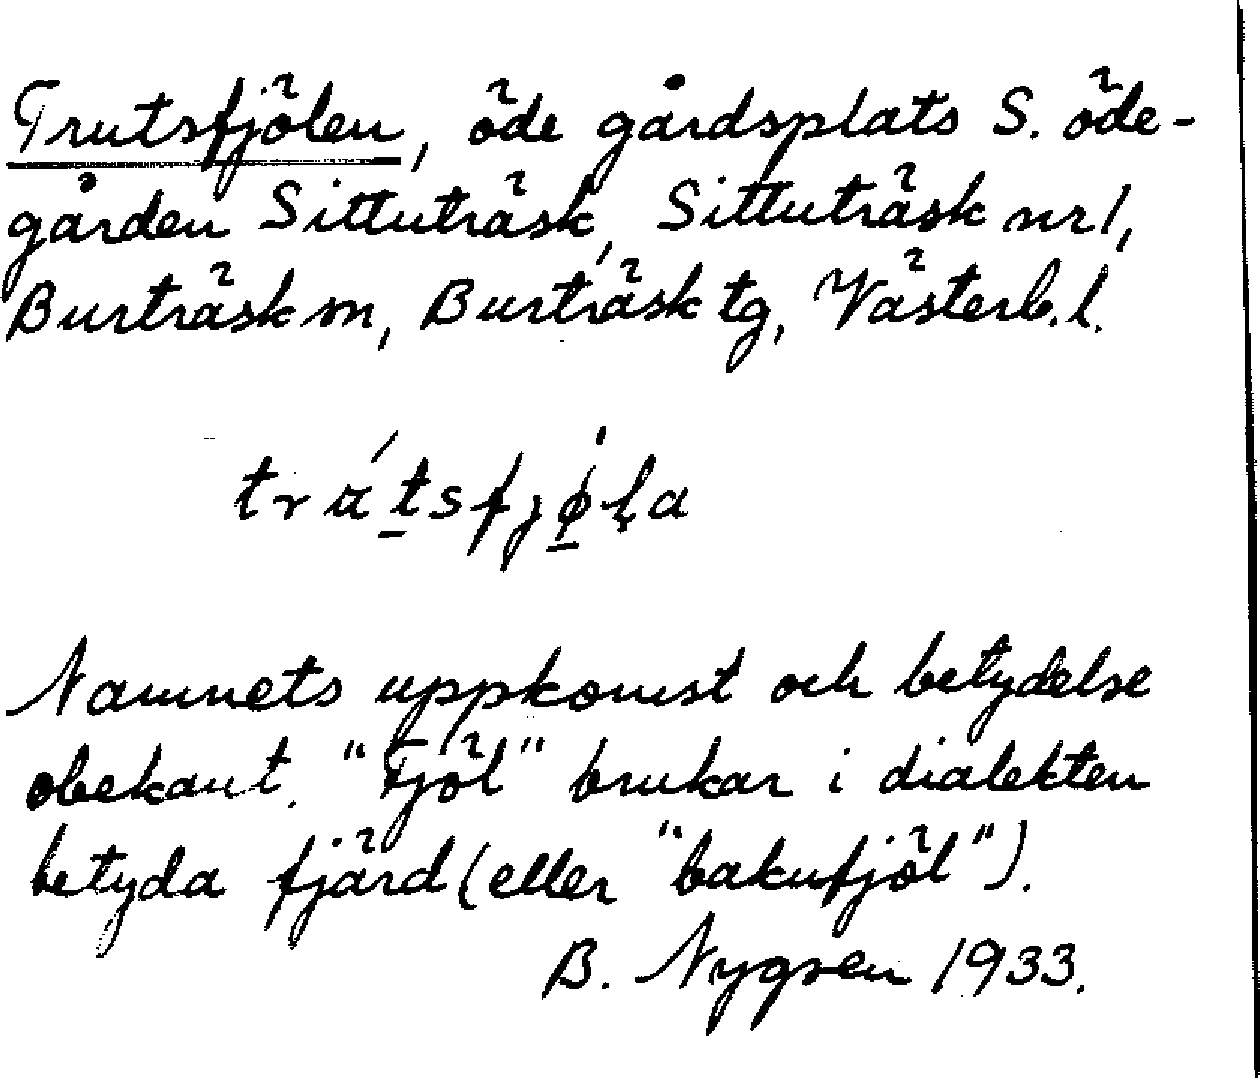 Trutsfjölen, öde gårdsplats S. öde-
gården Sittuträsk, Sittuträsk nr 1,
Burträsk sn, Burträsk tg, Västerb. l.
Namnets uppkomst och betydelse
obekant. "Fjöl" brukar i dialekten
betyda fjärd (eller "bakufjöl").
B. Nygren 1933.